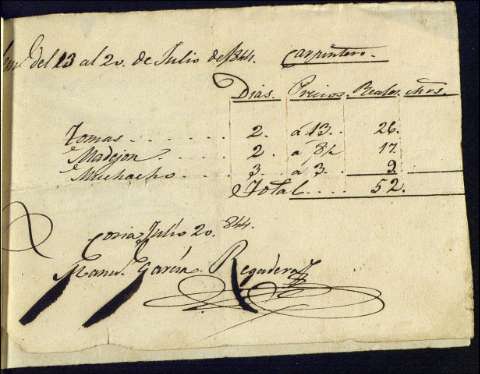 del 13 al 20. de Julio de 1844. Carpintero.
Dias. Precios Reales. Mrs.
Tomas . . . . . . 2. á 13. 26.
Madejon . . . . . 2. á 8½ 17.
Muchacho . . . . 3. á 3. 9
Total . . . . 52.
Coria Julio 20. 844.
Manu.l García Regadera